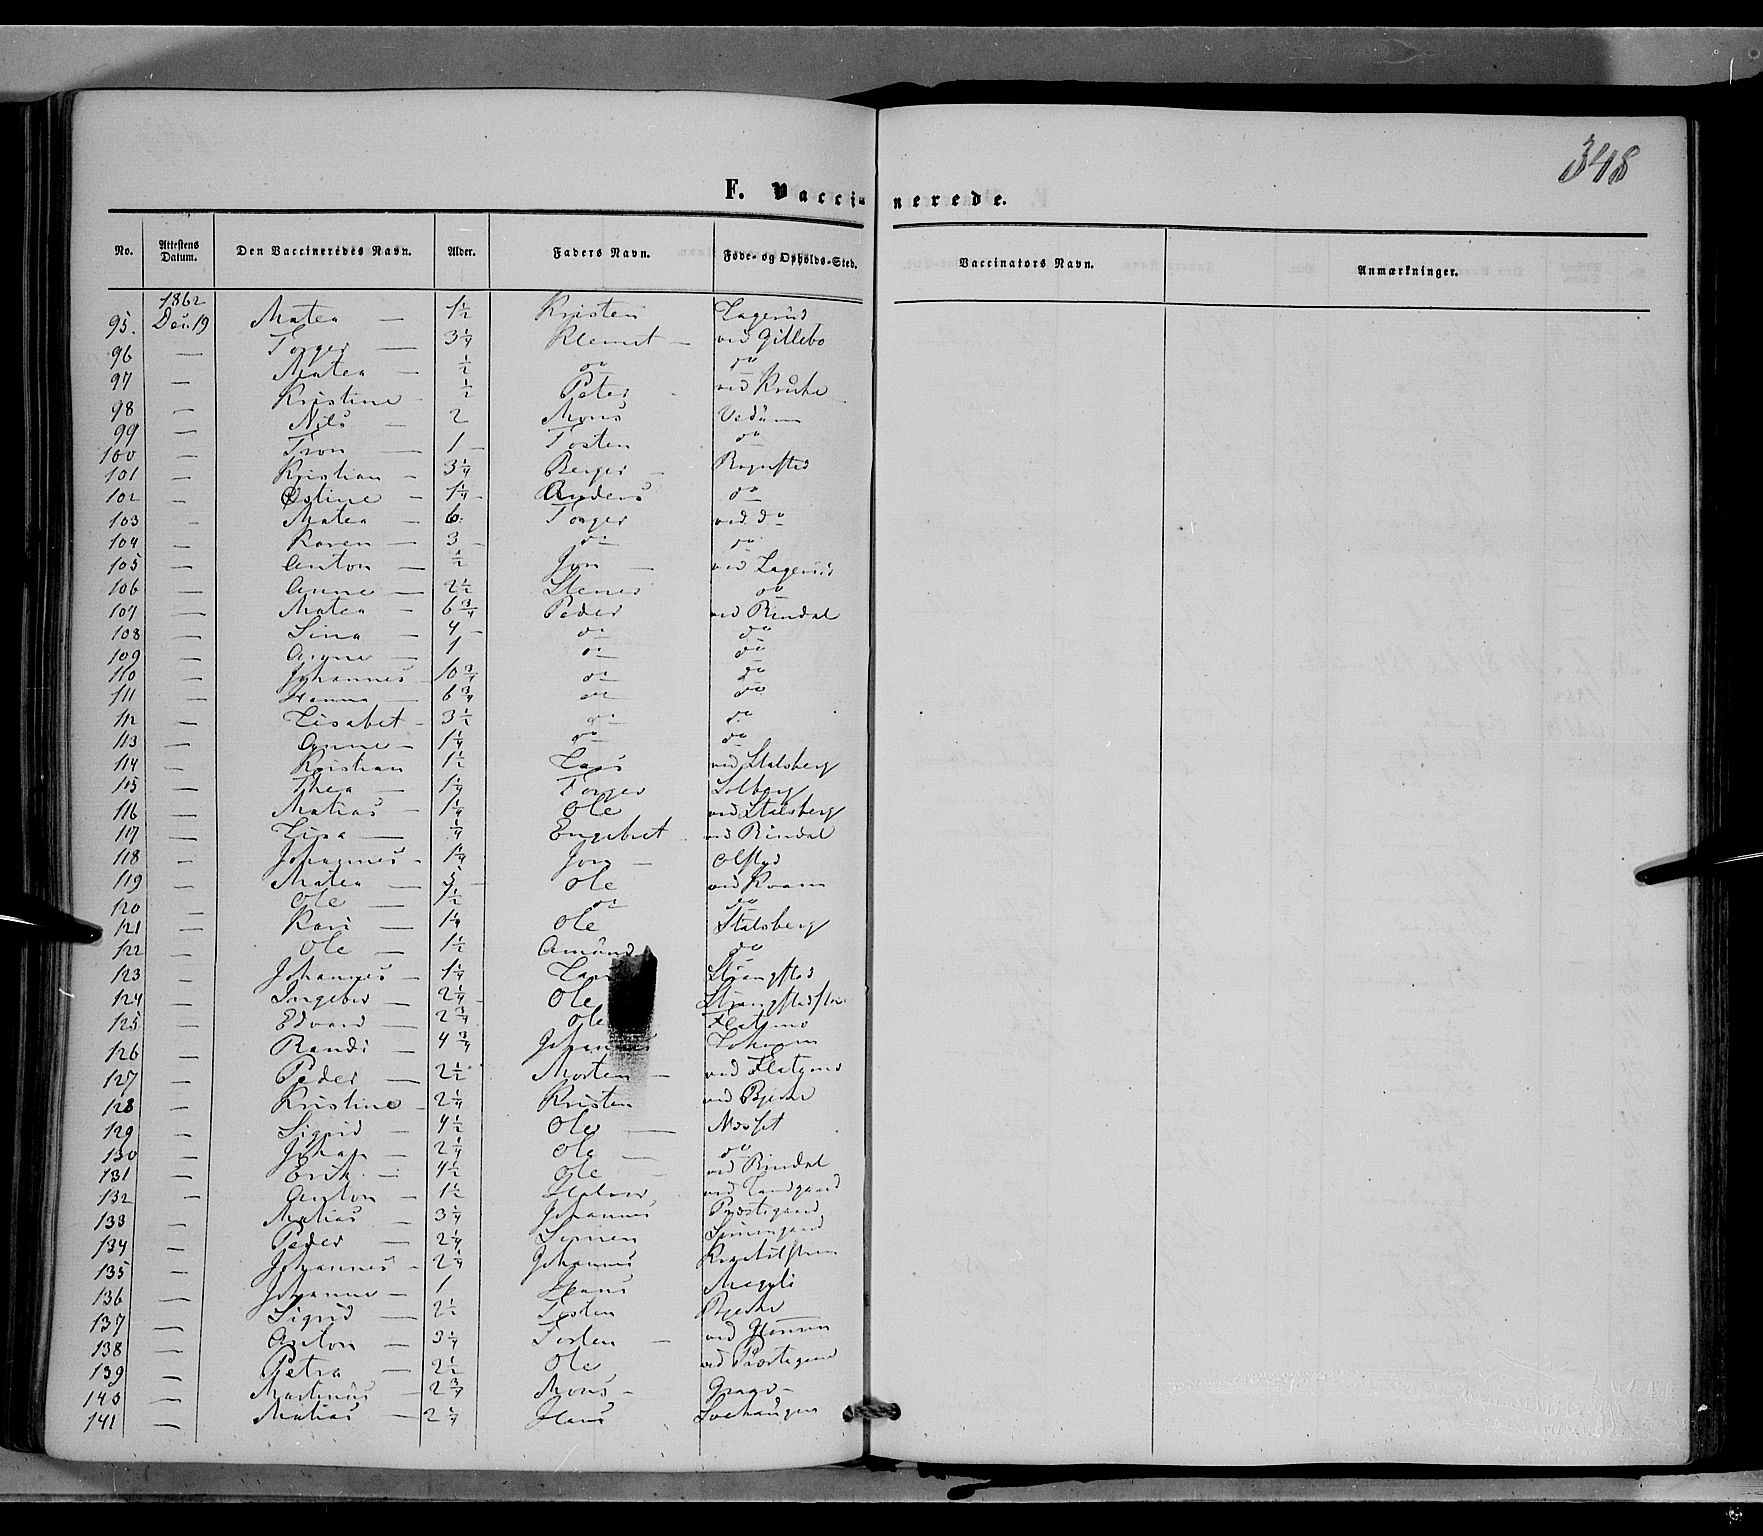 348
F. Vaccinerede.
No. Attestens Datum. Den Vaccineredes Navn. Alder. Faders Navn. Føde- og Opholds-Sted. Vaccinators Navn. Anmærkninger.
1862
95. Dec. 19 Matea — 1½ Kristen Lagerud
96 — Torger — 3¼ Klemet — ved Gillebo
97 — Matea — ½ do do
98 — Kristine - ½ Peter - ved Kruke
99 — Nils — 2 Mons Vedum
100 — Tron — 1 — Tosten do
101 — Kristian — 3¼ Berger —
102 — Østine — 1¼ - Anders do
103 — Matea — 6. Torger ved do
104 — Karen — 3 — do do
105 — Anton — ½ Jon — ved Lagerud
106 — Anne — 2½ Stener do
107 — Matea — 6¾ Peder ved Rindal
108 — Lina — 4 — do do
109 — Anne — 1 do do
110 — Johannes — 10¾ do do
111 — Hanna — 6¾ do do
112 — Lisabet — 3½ do do
113 — Anne — 1¼ do do
114 — Kristian 1½ Lars ved Stalsberg
115 — Thea — 1¼ Torger Solberg
116 — Matias — 1¼ Ole ved Stalsberg
117 — Lisa — ¼ Engebret ved Rindal
118 — Johannes — 1¼ Jon — Olstad
119 — Matea — 5 — Ole ved Kvam
120 — Ole — 1½ do do
121 — Kari — 1¼ Ole Stalsberg
122 — Ole — 1½ Amund do
123 — Johannes — 1¼
124 — Ingebor — 2¼ Ole
125 — Edvard — 2¾ Ole Flatmo
126 — Randi — 4¾ Johannes
127 — Peder — 2½ Morten — ved Flatmo
128 — Kristine — 2¼ Kristen ved Bjerke
129 — Sigrid — 4½ Ole —
130 — Johan — 2¼ Ole — do
131 — Erik — 4½ Ole — ved Rindal
132 — Anton — 1½ ved
133 — Matias — 3¼ Johannes Præstegaard
134 — Peder — 2¼ Simen
135 — Johannes — 2¼ Johannes
136 — Johanne — 1 Hans Megeli
137 — Sigrid — 2½ Tosten Bjerke
138 — Anton — 3¼ Tosten — ved
139 — Petra — 2½ Ole ved Præstegaard
140 — Martinus — 2¾ Mons —
141 — Matias — 2¼ Hans